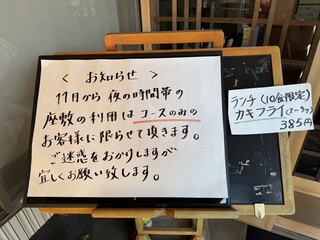 ＜ お知らせ ＞
11月から 夜の時間帯の
座敷の利用は コースのみの
お客様に限らせて頂きます。
ご迷惑をおかけしますが
宜しくお願い致します。
ランチ(10食限定)
カキフライ
385円